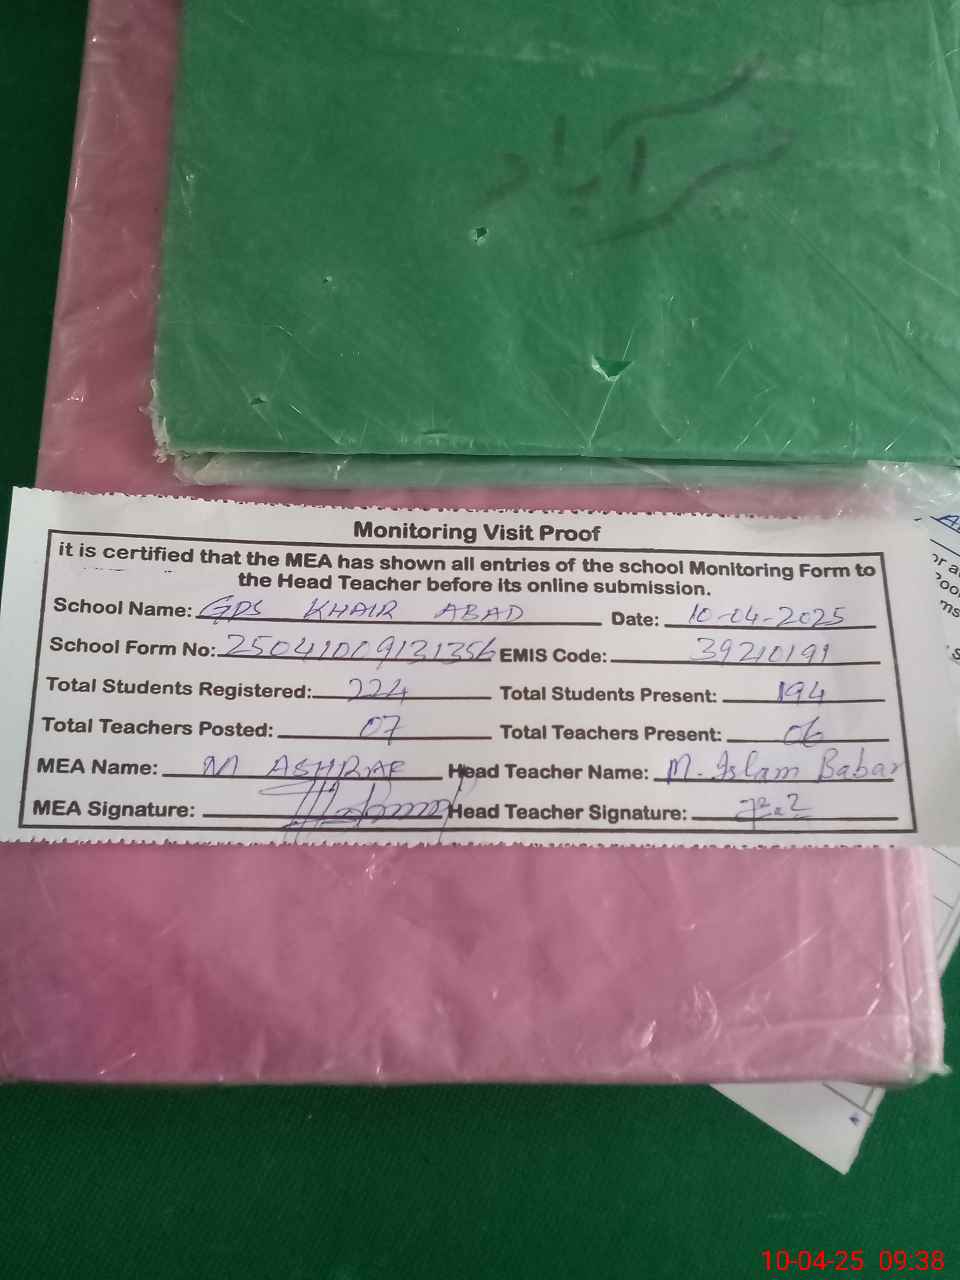 خیرآباد
Monitoring Visit Proof
it is certified that the MEA has shown all entries of the school Monitoring Form to
the Head Teacher before its online submission.
School Name: GPS KHAIR ABAD Date: 10-04-2025
School Form No: 25041009131356 EMIS Code: 39210191
Total Students Registered: 224 Total Students Present: 194
Total Teachers Posted: 07 Total Teachers Present: 06
MEA Name: M ASHRAF Head Teacher Name: M. Islam Babar
MEA Signature: Head Teacher Signature:
10-04-25 09:38